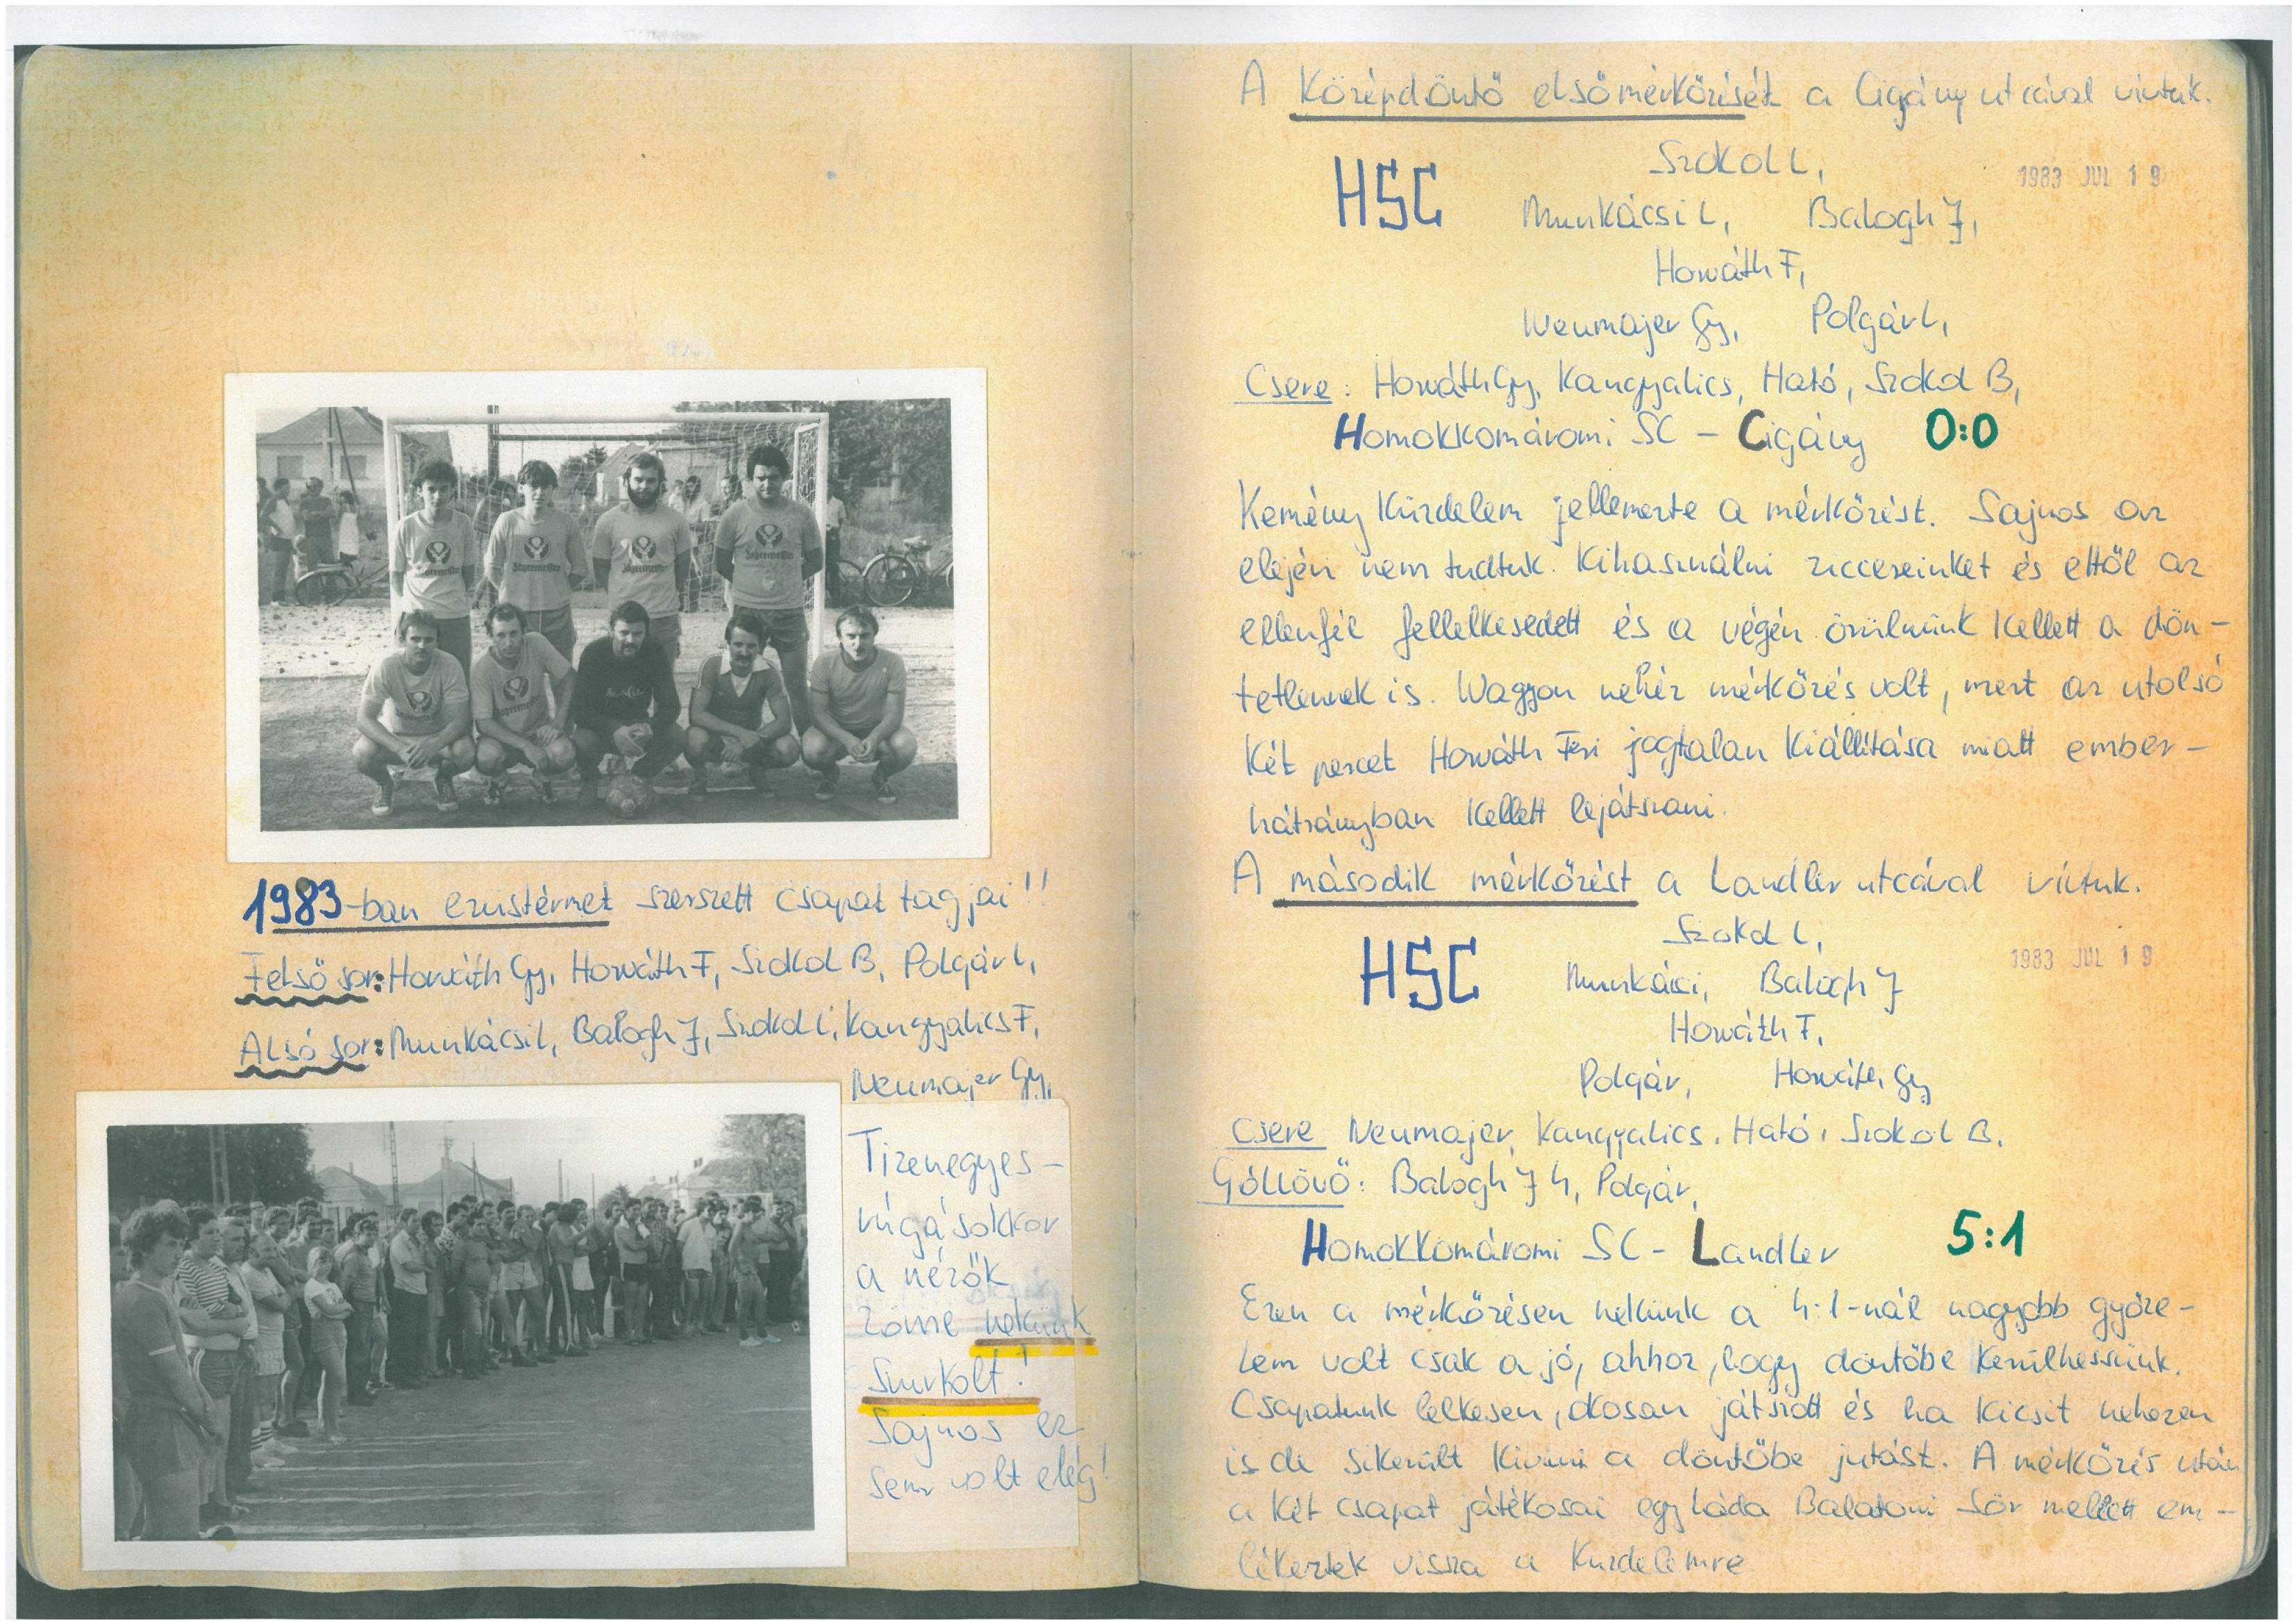 Jägermeister
Jägermeister
Jägermeister
Jägermeister
1983-ban ezüstérmet szerzett csapat tagjai!!
Felső sor: Horváth Gy, Horváth F, Szokol B, Polgár L,
Alsó sor: Munkácsi L, Balogh J, Szokol L, Kangyalics F,
Neumajer Gy,
Tizenegyes-
rúgásokkor
a nézők
zöme nekünk
szurkolt!
Sajnos ez
sem volt elég!
A Középdöntő első mérkőzését a Cigány utcával vívtuk.
HSC
Szokol L,
1983 JUL 19
Munkácsi L, Balogh J,
Horváth F,
Neumajer Gy, Polgár L,
Csere: Horváth Gy, Kangyalics, Ható, Szokol B,
Homokkomáromi SC - Cigány 0:0
Kemény küzdelem jellemezte a mérkőzést. Sajnos az
elején nem tudtuk kihasználni ziccereinket és ettől az
ellenfél fellelkesedett és a végén örülnünk kellett a dön-
tetlennek is. Nagyon nehéz mérkőzés volt, mert az utolsó
két percet Horváth Feri jogtalan kiállítása miatt ember-
hátrányban kellett lejátszani.
A második mérkőzést a Landler utcával vívtuk.
HSC
Szokol L,
1983 JUL 19
Munkácsi, Balogh J
Horváth F,
Polgár, Horváth Gy
Csere Neumajer, Kangyalics, Ható, Szokol B,
Góllövő: Balogh J 4, Polgár,
Homokkomáromi SC - Landler 5:1
Ezen a mérkőzésen nekünk a 4:1-nél nagyobb győze-
lem volt csak a jó, ahhoz, hogy döntőbe kerülhessünk.
Csapatunk lelkesen, okosan játszott és ha kicsit nehezen
is de sikerült kivívni a döntőbe jutást. A mérkőzés után
a két csapat játékosai egy láda Balatoni sör mellett em-
lékeztek vissza a küzdelemre